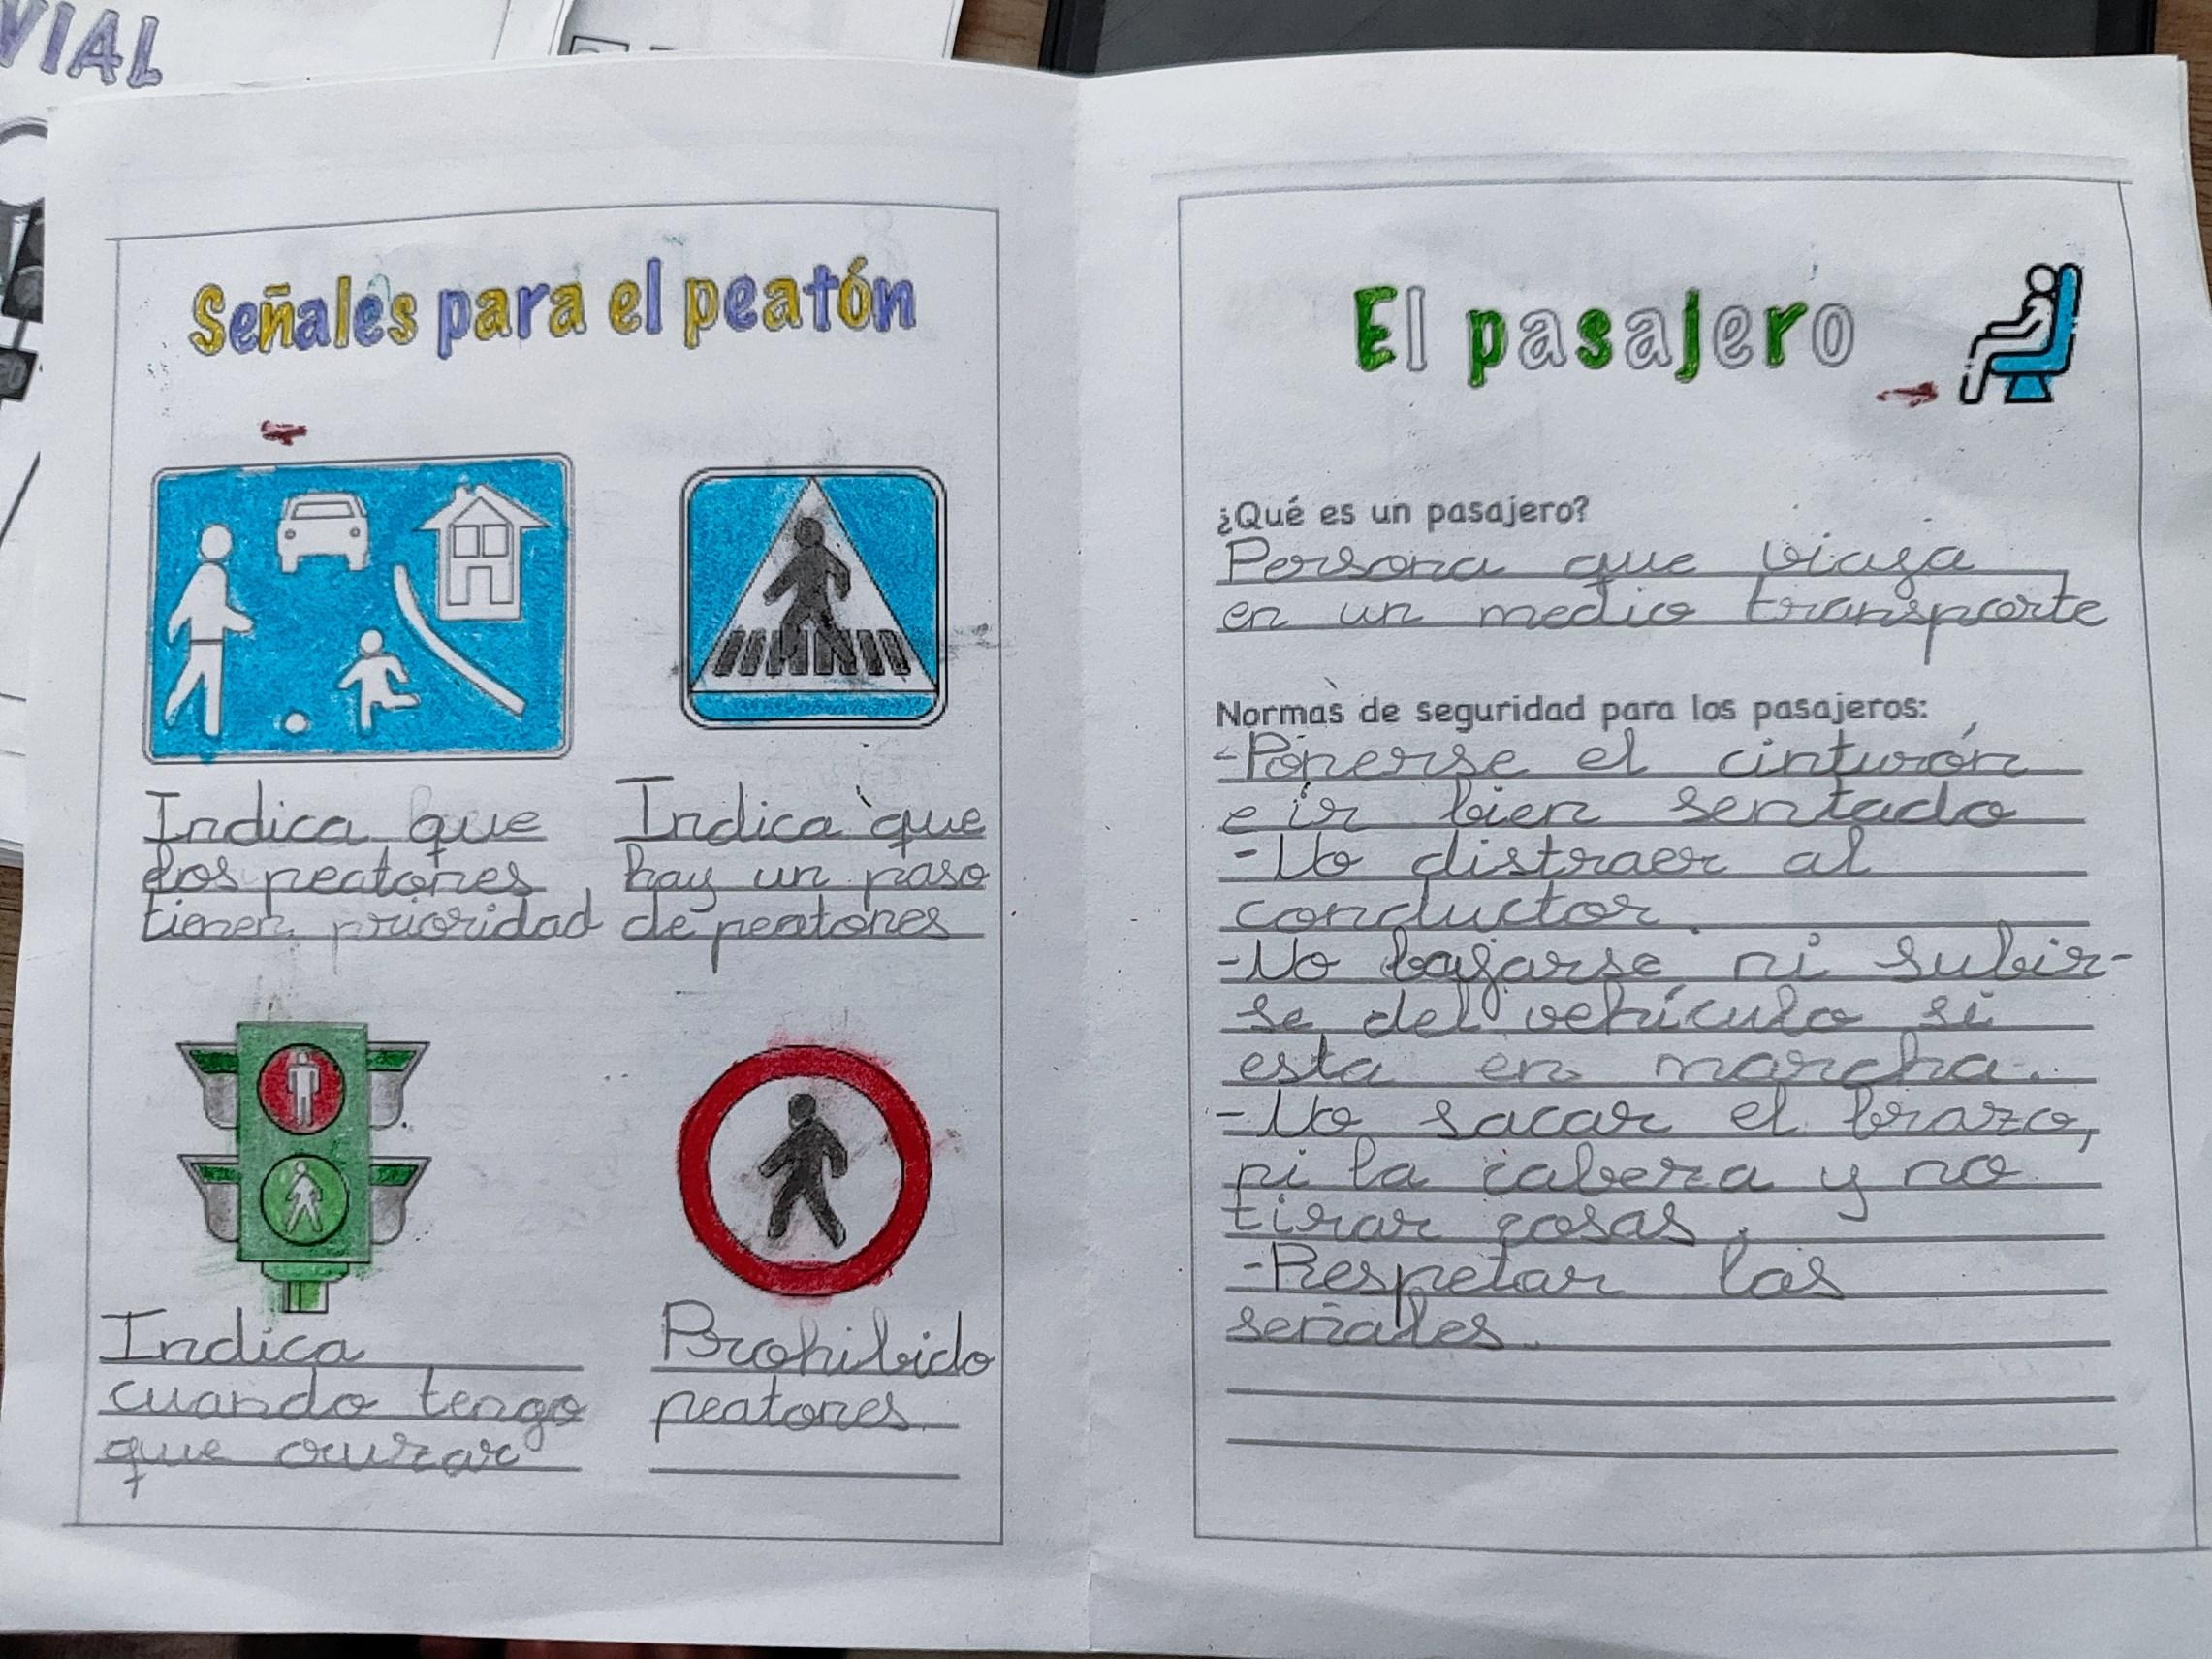 VIAL
Señales para el peatón
Indica que
los peatones
tienen prioridad
Indica que
hay un paso
de peatones
Indica
cuando tengo
que cruzar
Prohibido
peatones.
El pasajero
¿Qué es un pasajero?
Persona que viaja
en un medio transporte
Normas de seguridad para los pasajeros:
-Ponerse el cinturón
e ir bien sentado
-No distraer al
conductor.
-No bajarse ni subir-
se del vehículo si
esta en marcha.
-No sacar el brazo,
ni la cabeza y no
tirar cosas.
-Respetar las
señales.